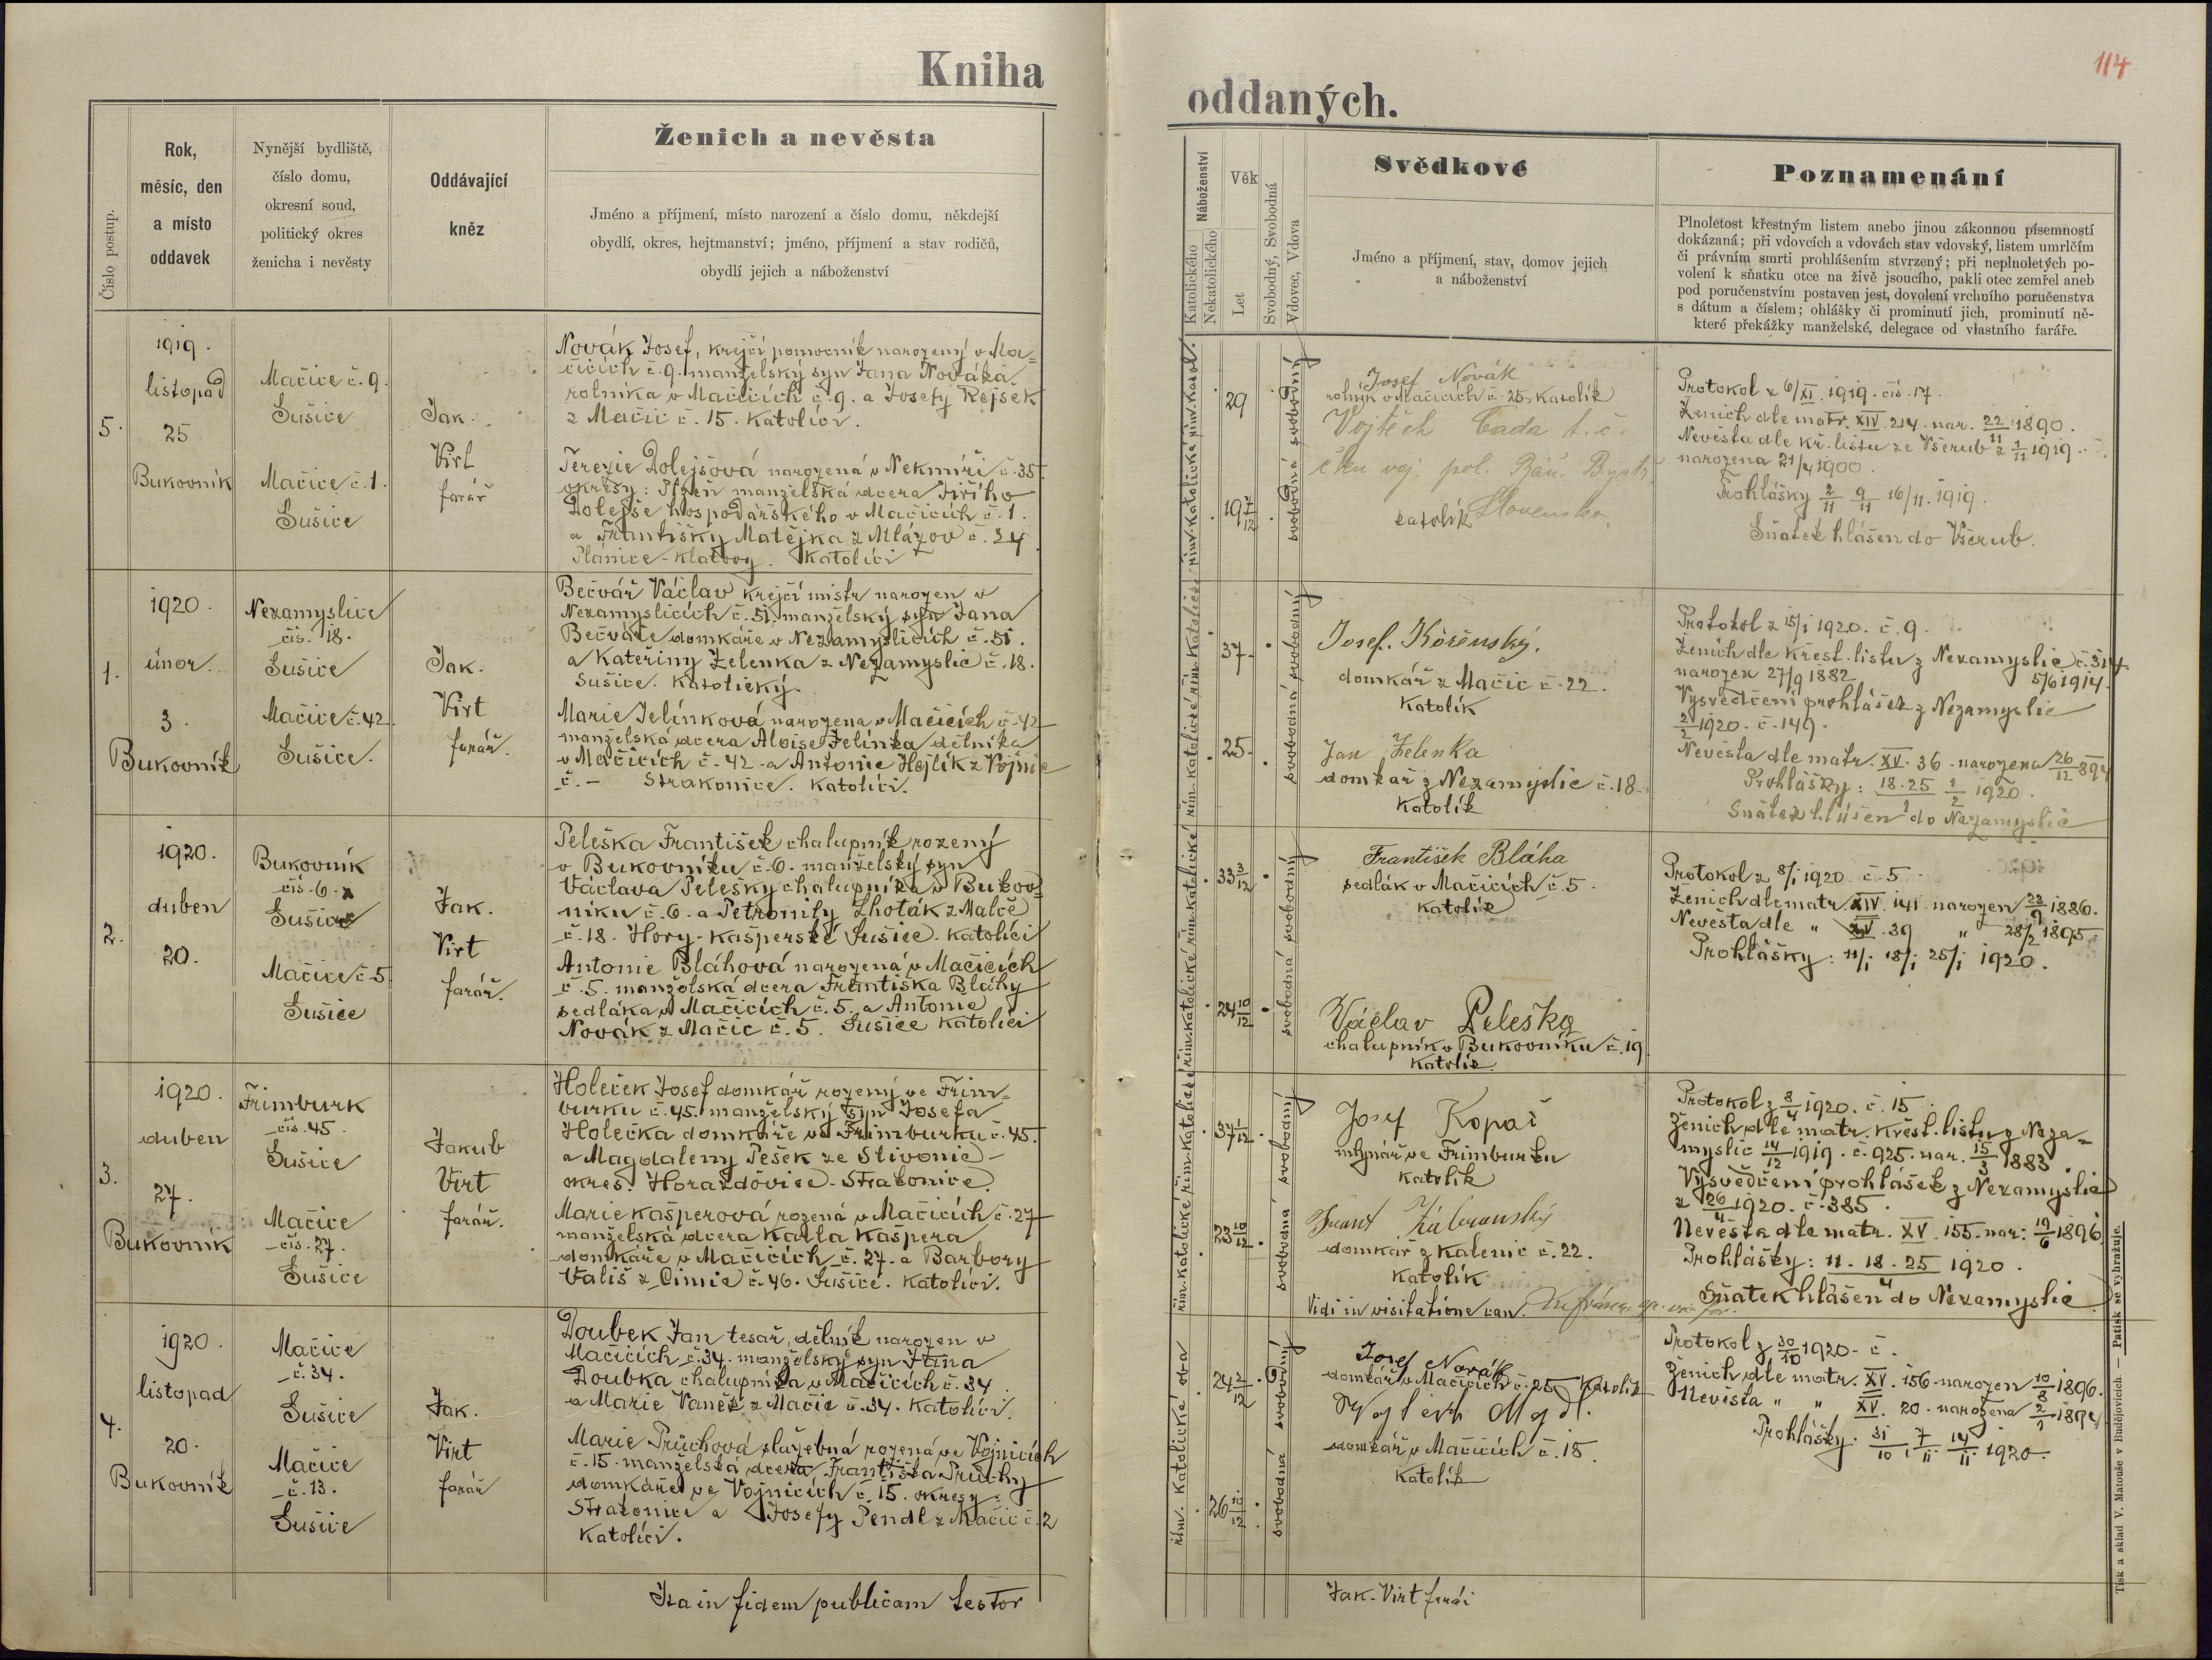 Kniha
oddaných.
114
Číslo postup.
Rok,
měsíc, den
a místo
oddavek
Nynější bydliště,
číslo domu,
okresní soud,
politický okres
ženicha i nevěsty
Oddávající
kněz
Ženich a nevěsta
Jméno a příjmení, místo narození a číslo domu, někdejší
obydlí, okres, hejtmanství; jméno, příjmení a stav rodičů,
obydlí jejich a náboženství
Náboženství
Katolického
Nekatolického
Věk
Let
Svobodný, Svobodná
Vdovec, Vdova
Svědkové
Jméno a příjmení, stav, domov jejich
a náboženství
Poznamenání
Plnoletost křestným listem anebo jinou zákonnou písemností
dokázaná; při vdovcích a vdovách stav vdovský, listem umrlčím
či právním smrti prohlášením stvrzený; při neplnoletých po-
volení k sňatku otce na živě jsoucího, pakli otec zemřel aneb
pod poručenstvím postaven jest, dovolení vrchního poručenstva
s dátum a číslem; ohlášky či prominutí jich, prominutí ně-
které překážky manželské, delegace od vlastního faráře.
5.
1919.
listopad
25
Bukovník
Mačice č. 9.
Sušice
Mačice č. 1.
Sušice
Jak.
Virt
farář
Novák Josef, krejčí pomocník narozený v Ma=
čicích č. 9. manželský syn Jana Nováka
rolníka v Mačicích č. 9. a Josefy Rejsek
z Mačic č. 15. Katolíci.
Terezie Dolejšová narozená v Nekmíři č. 35.
okresy: Plzeň manželská dcera Jiřího
Dolejše hospodářského v Mačicích č. 1.
a Františky Matějka z Mlázov č. 34.
Planice-Klatovy. Katolíci
29
19 7/12
svobodný
svobodná
Josef Novák
rolník v Mačicích č. 25 Katolík
Vojtěch Čada t. č.
voj. pol. Báň. Bystr.
Slovensko
katolík
Protokol z 6/XI. 1919. čís. 17.
Ženich dle matr. XIV. 214. nar. 22/11 1890.
Nevěsta dle kř. listu ze Všerub z 1/11 1919.
narozena 21/4 1900.
Prohlášky 2/11 9/11 16/11. 1919.
Sňatek hlášen do Všerub.
1.
1920.
únor
3.
Bukovník
Nezamyslice
čís. 18.
Sušice
Mačice č. 42.
Sušice.
Jak.
Virt
farář.
Bečvář Václav krejčí mistr narozen v
Nezamyslicích č. 51. manželský syn Jana
Bečváře domkáře v Nezamyslicích č. 51.
a Kateřiny Zelenka z Nezamyslic č. 18.
Sušice. Katolický.
Marie Jelínková narozena v Mačicích č. 42
manželská dcera Aloise Jelínka dělníka
v Mačicích č. 42. a Antonie Hejlík z Vojnic
č. – Strakonice. Katolíci.
37
25
svobodný
svobodná
Josef Kořenský.
domkář z Mačic č. 22.
Katolík
Jan Zelenka
domkář z Nezamyslic č. 18
Katolík
Protokol z 15/1 1920. č. 9.
Ženich dle křest. listu z Nezamyslic č. 314
narozen 27/9 1882 5/6 1914.
Vysvědčení prohlášek z Nezamyslic
2/2 1920. č. 149.
Nevěsta dle matr. XV. 36. narozena 26/12 1894
Prohlášky: 18. 25/1 1/2 1920.
Sňatek hlášen do Nezamyslic
2.
1920.
duben
20.
Bukovník
čís. 6.
Sušice
Mačice č. 5.
Sušice
Jak.
Virt
farář.
Peleška František chalupník rozený
v Bukovníku č. 6. manželský syn
Václava Pelešky chalupníka v Bukov=
níku č. 6. a Petronily Lhoták z Malče
č. 18. Hory-Kašperské Sušice. Katolíci
Antonie Bláhová narozená v Mačicích
č. 5. manželská dcera Františka Bláhy
sedláka v Mačicích č. 5. a Antonie
Novák z Mačic č. 5. Sušice Katolíci
33 3/12
24 10/12
svobodný
svobodná
František Bláha
sedlák v Mačicích č. 5.
Katolík
Václav Peleška
chalupník v Bukovníku č. 19
Katolík
Protokol z 8/1 1920. č. 5.
Ženich dle matr. XIV. 141. narozen 23/9 1886.
Nevěsta dle " XV. 39 " 28/2 1895.
Prohlášky: 11/1 18/1 25/1 1920.
3.
1920.
duben
27.
Bukovník
Frimburk
čís. 45.
Sušice
Mačice
čís. 27.
Sušice
Jakub
Virt
farář.
Holeček Josef domkář rozený ve Frim=
burku č. 45. manželský syn Josefa
Holečka domkáře ve Frimburku č. 45.
a Magdaleny Pešek ze Slivonic –
okres. Horažďovice-Strakonice.
Marie Kašperová rozená v Mačicích č. 27
manželská dcera Karla Kašpera
domkáře v Mačicích č. 27. a Barbory
Vališ z Čimic č. 46. Sušice. Katolíci.
37 1/12
23 10/12
svobodný
svobodná
Josef Kopač
mlynář ve Frimburku
Katolík
domkář z Kalenic č. 22.
Katolík
Vidi in visitatione can.
Protokol z 8/4 1920. č. 15.
Ženich dle matr. křest. listu z Neza=
myslic 14/12 1919. č. 925. nar. 15/3 1883.
Vysvědčení prohlášek z Nezamyslic
z 26/4 1920. č. 385.
Nevěsta dle matr. XV. 155. nar: 19/6 1896.
Prohlášky: 11. 18. 25/4 1920.
Sňatek hlášen do Nezamyslic
4.
1920.
listopad
20.
Bukovník
Mačice
č. 34.
Sušice
Mačice
č. 13.
Sušice
Jak.
Virt
farář
Doubek Jan tesař, dělník narozen v
Mačicích č. 34. manželský syn Jana
Doubka chalupníka v Mačicích č. 34.
a Marie Vaněk z Mačic č. 34. Katolíci.
Marie Průchová služebná rozená ve Vojnicích
č. 15. manželská dcera Františka Průchy
domkáře ve Vojnicích č. 15. okresy:
Strakonice a Josefy Pendl z Mačic č. 2
Katolíci.
24 2/12
26 10/12
řím. katolické oba
svobodný
svobodná
Josef Novák
domkář v Mačicích č. 25 Katolík
domkář v Mačicích č. 15.
Katolík
Protokol z 30/10 1920. č.
Ženich dle matr. XV. 156. narozen 10/8 1896.
Nevěsta " " XV. 20. narozena
Prohlášky: 31/10, 7/11 14/11 1920.
Ita in fidem publicam testor
Jak. Virt farář
Tisk a sklad V. Matouše v Budějovicích. — Patisk se vyhražuje.